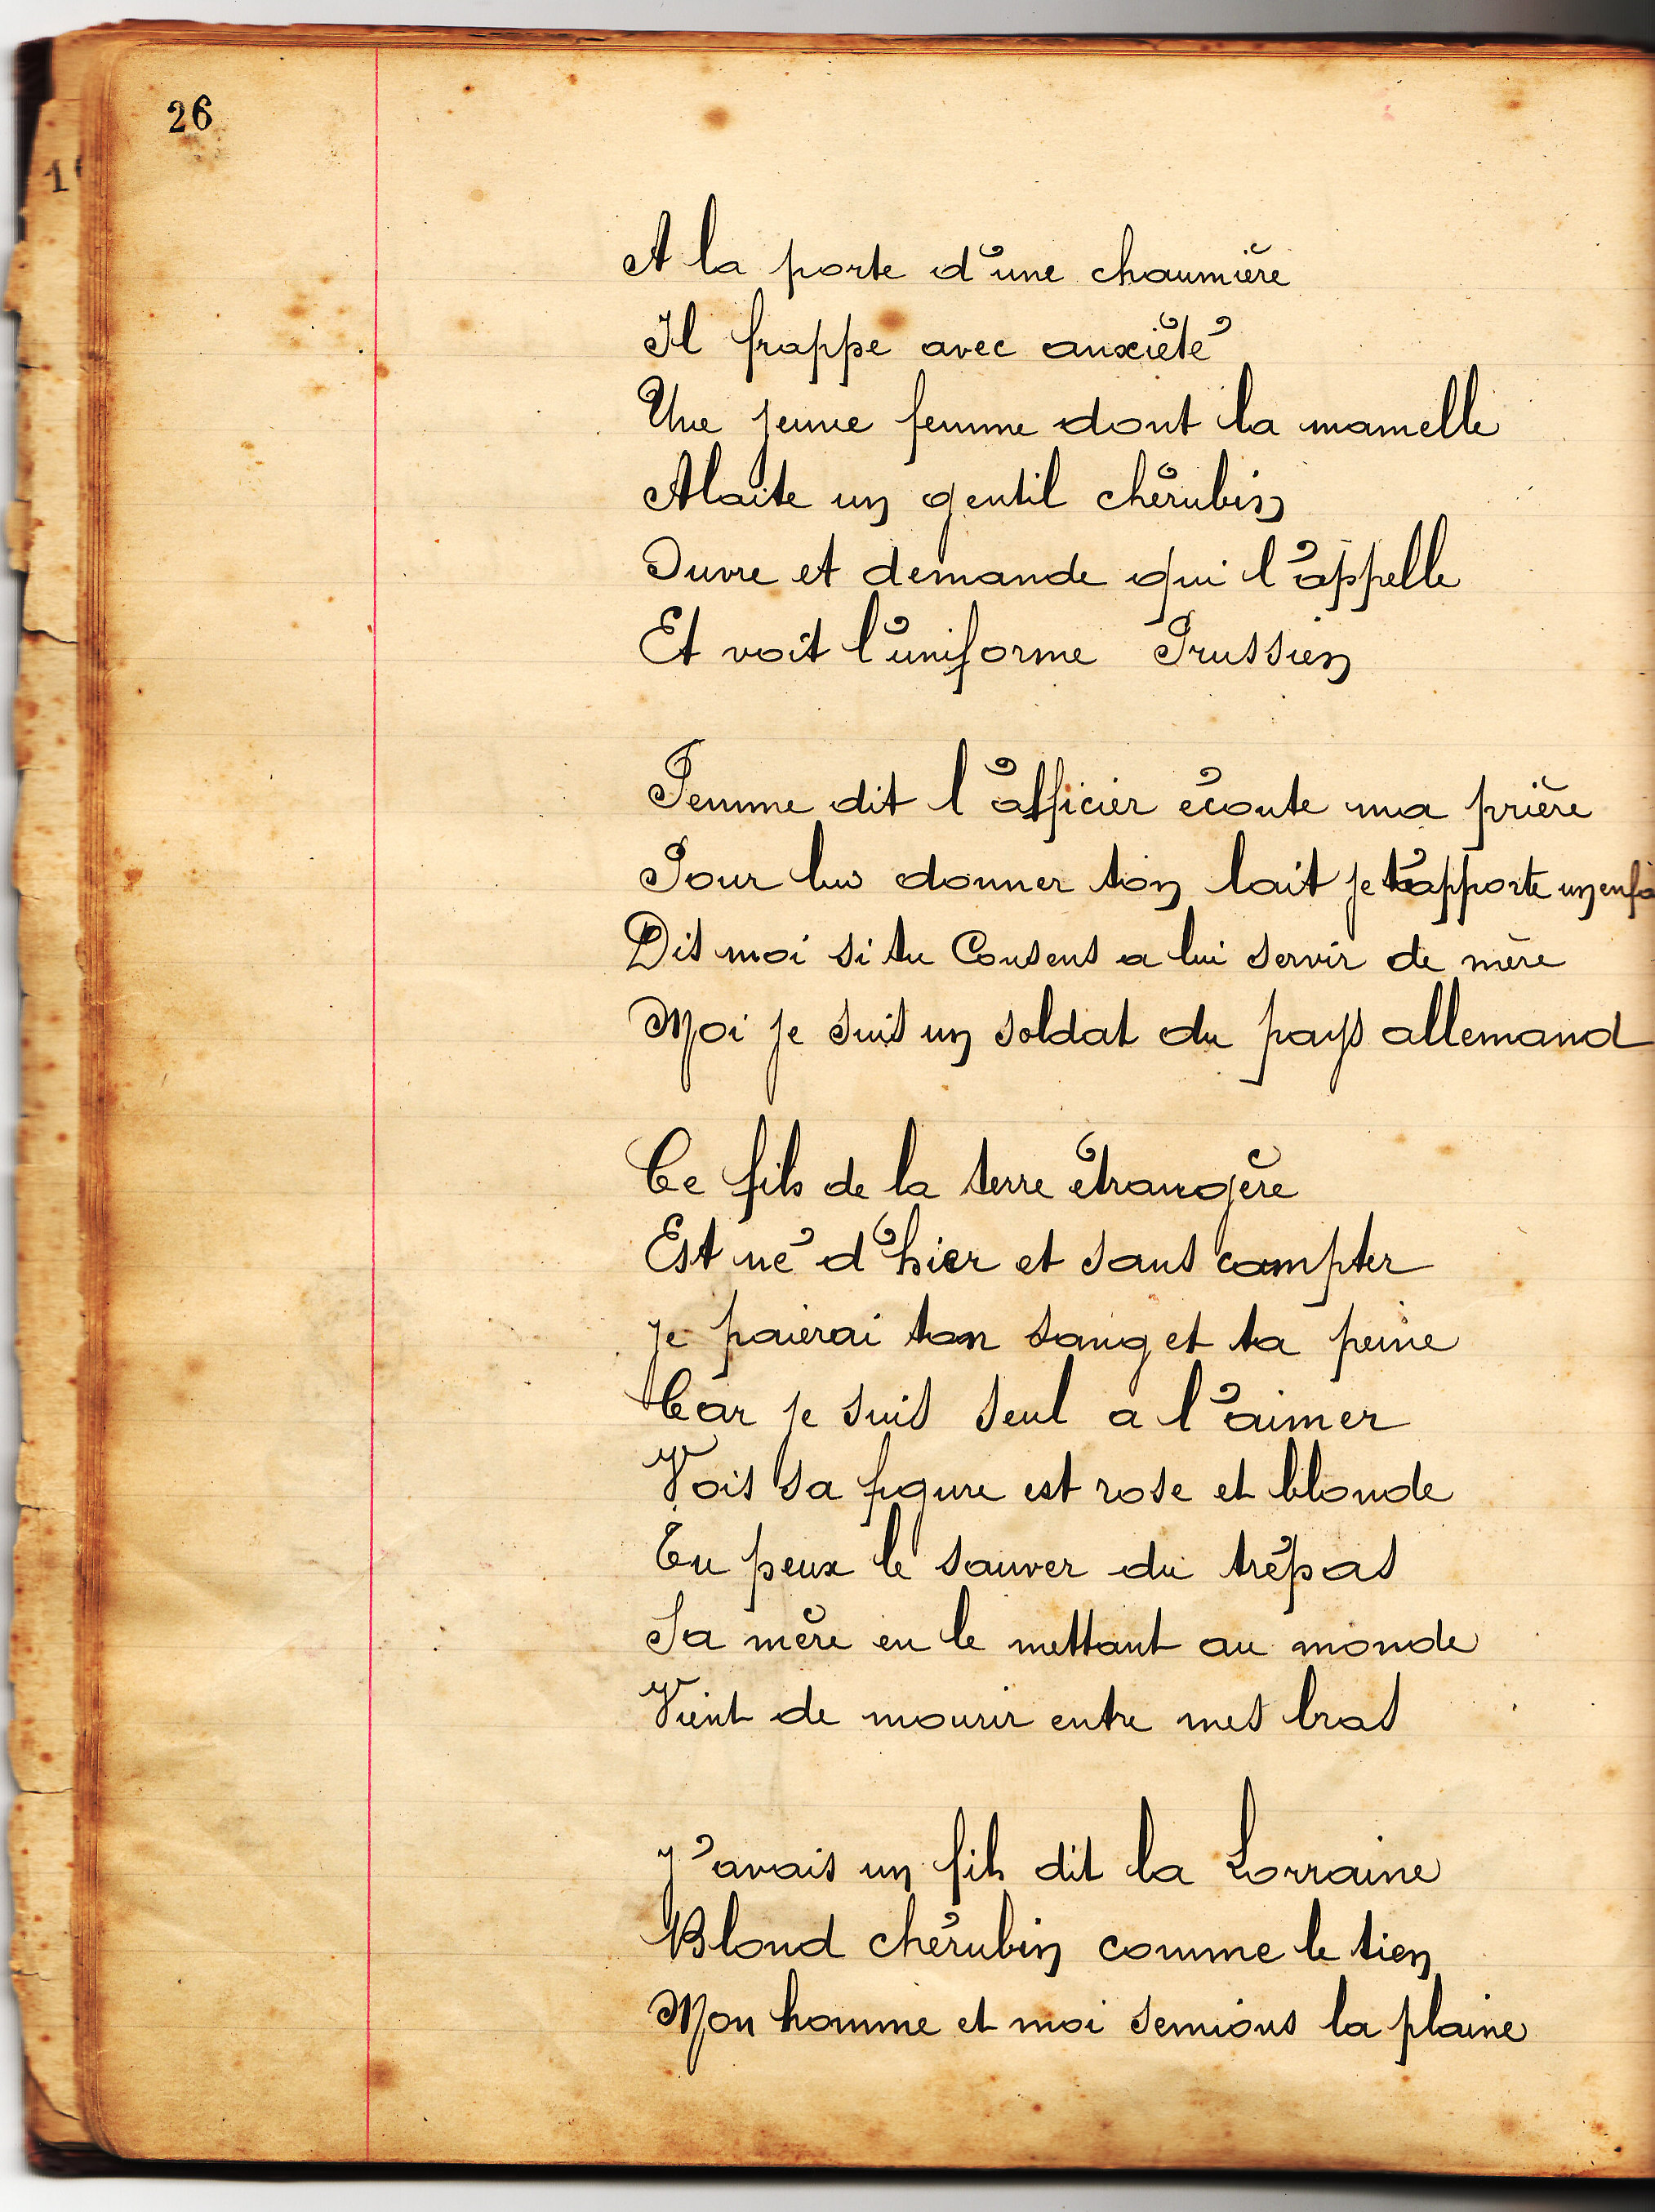 26
A la porte d'une chaumière
Il frappe avec anxiété
Une jeune femme dont la mamelle
Alaite un gentil chérubin
Ouvre et demande qui l'appelle
Et voit l'uniforme Prussien
Femme dit l'officier écoute ma prière
Pour lui donner ton lait je t'apporte un enfa
Dis moi si tu Consens a lui servir de mère
Moi je suis un soldat du pays allemand
Ce fils de la terre étrangère
Est né d'hier et sans compter
je paierai ton sang et ta peine
Car je suis seul a l'aimer
Vois sa figure est rose et blonde
Tu peux le sauver du trépas
Sa mère en le mettant au monde
Vient de mourir entre mes bras
J'avais un fils dit la Lorraine
Blond chérubin comme le tien
Mon homme et moi semions la plaine